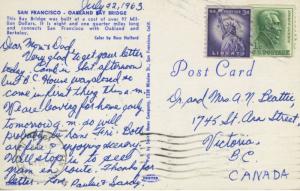 July 22, 1963.
SAN FRANCISCO - OAKLAND BAY BRIDGE
This Bay Bridge was built at a cost of over 77 million Dollars. It is eight and one quarter miles long and connects San Francisco with Oakland and Berkeley.
Color by Ross Hollard
Dear Mrs & Co
Very glad to get your letter
today. Good in last afternoon
but B.C. House was closed so
come in first thing this a.m.
We are leaving for home only
tomorrow a.m. so will
probably be home Fri. Both
are fine & enjoying scenery.
Shall stop in to see
mam en route. Thanks for
letter. Love, Pauline & Sandy.
Post Card
Dr. and Mrs A. N. Beattie
1745 St Ann Street,
Victoria,
B.C.
CANADA
LIBERTY
3¢